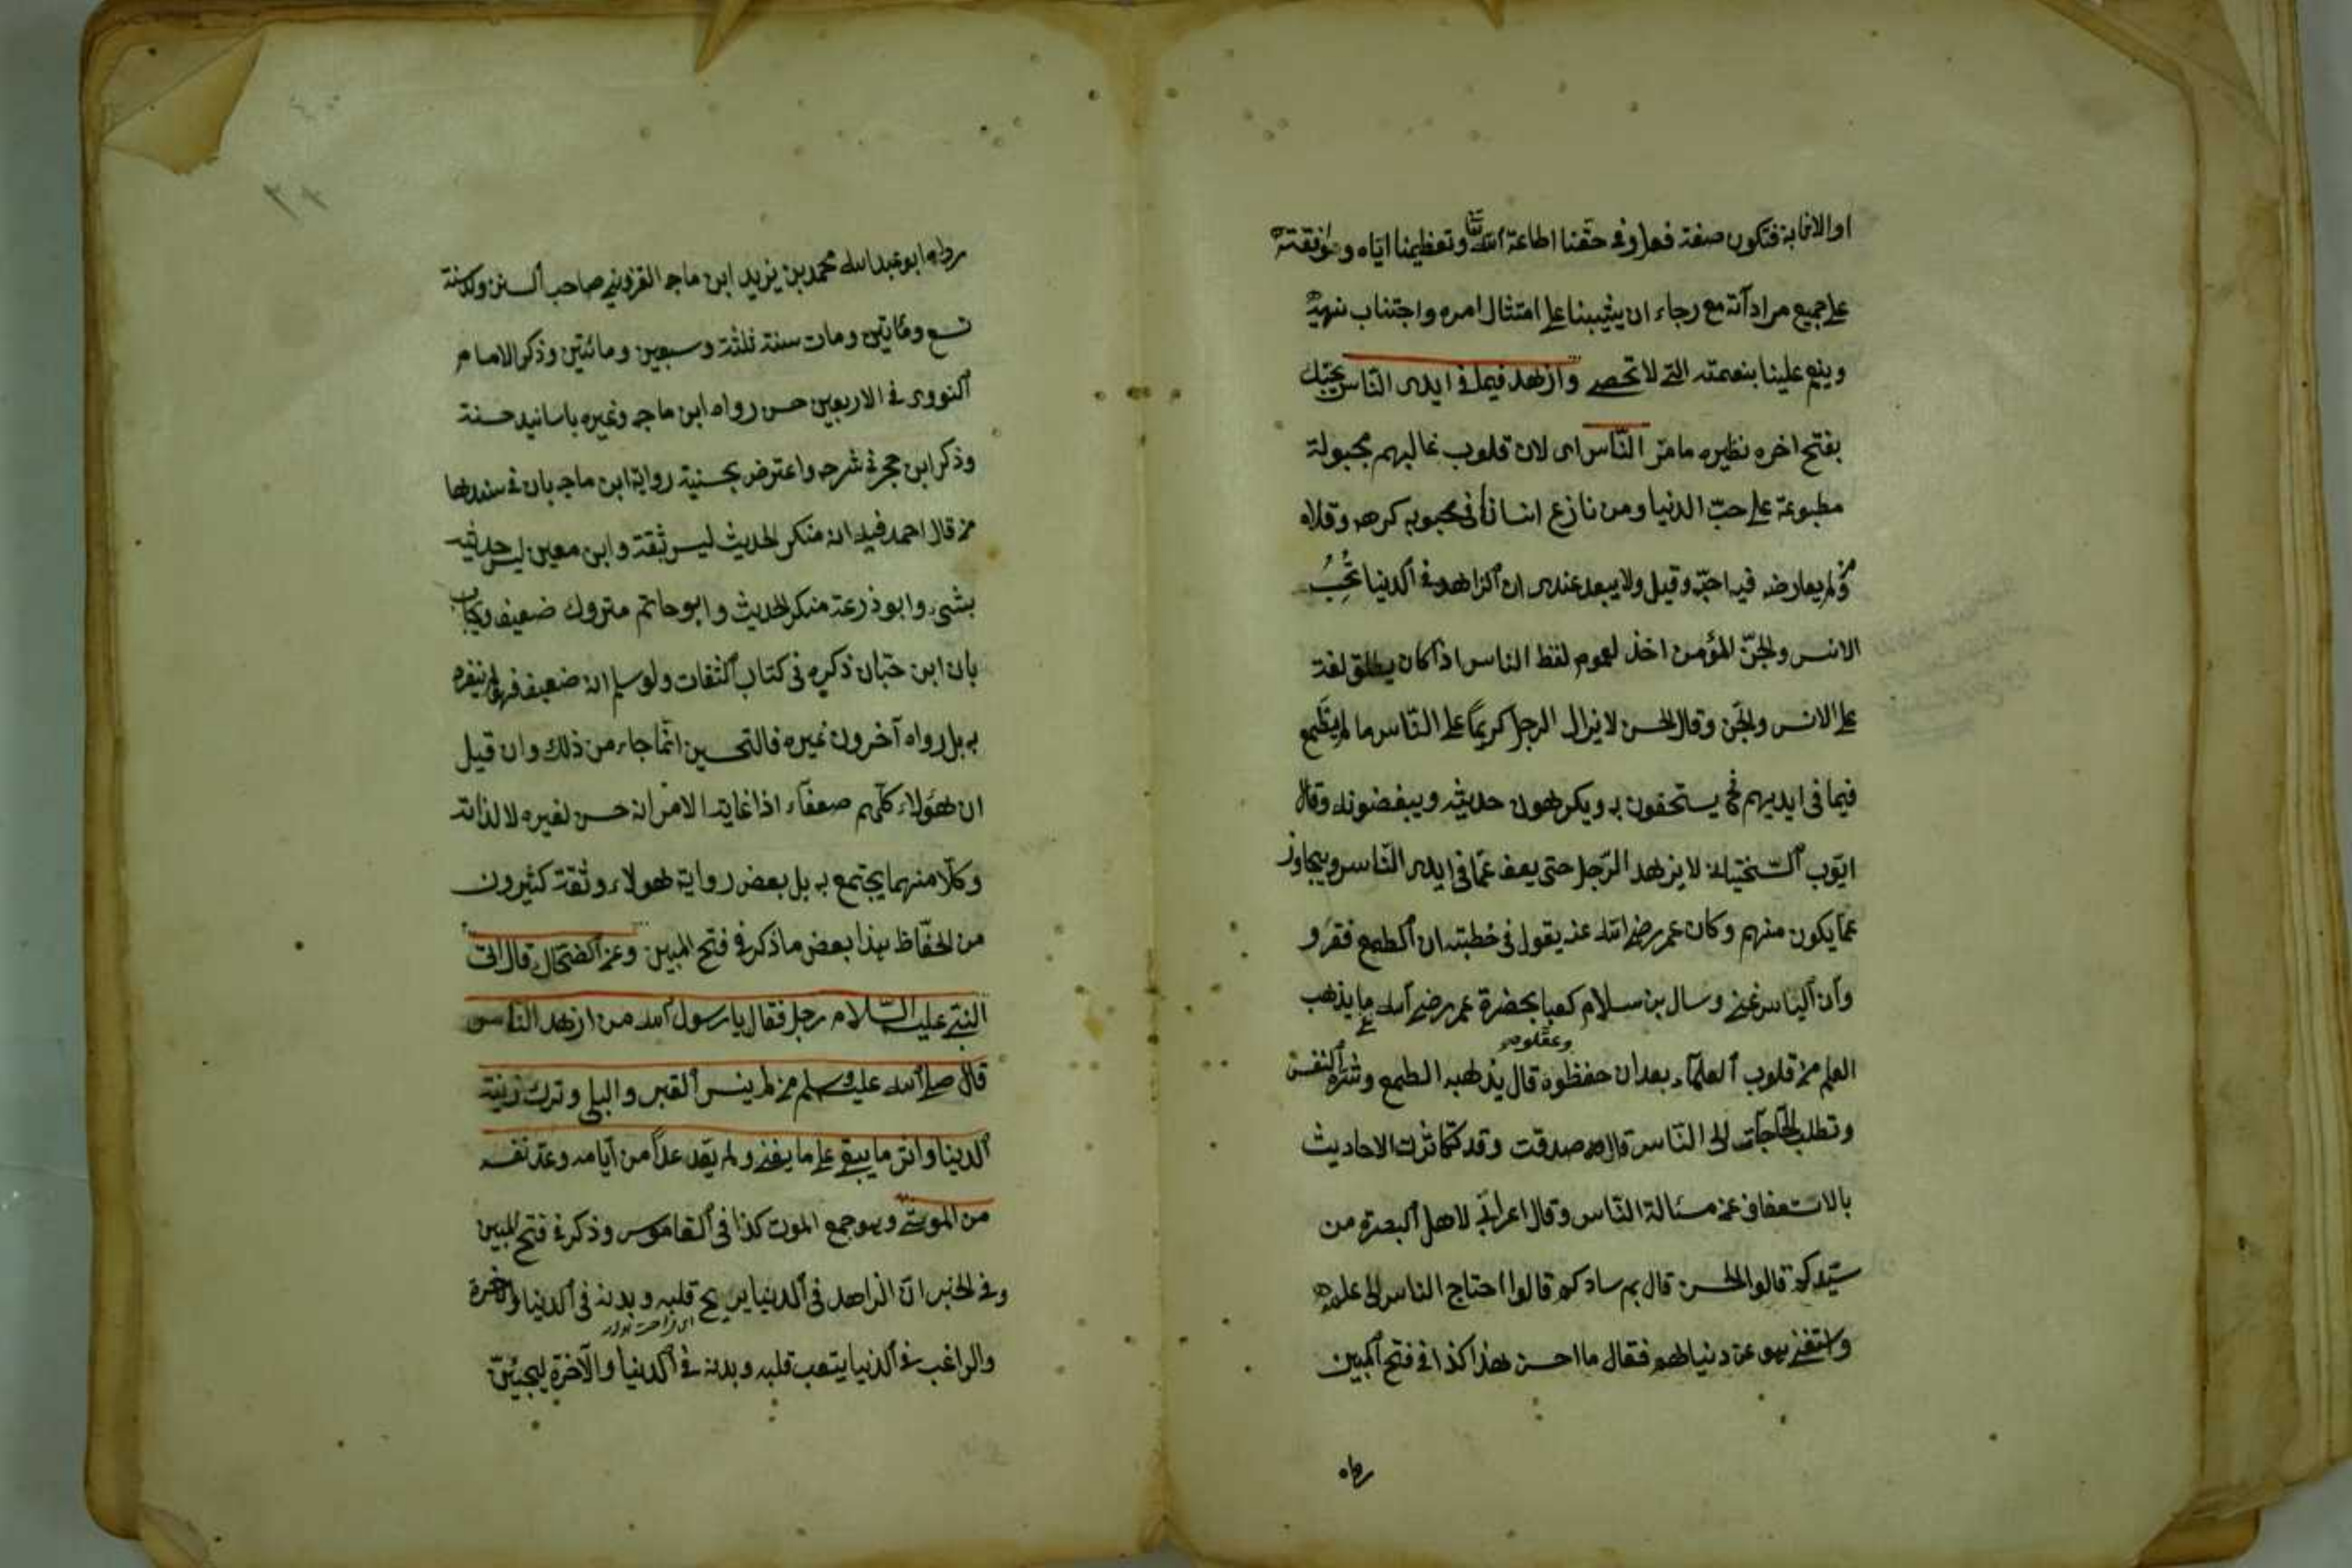 او الاثابة فتكون صفة فعل وفى حقنا اطاعة الله تعا وتعظيمنا اياه وموافقته
على جميع مراداته مع رجاء ان يثيبنا على امتثال امره واجتناب نهيه
وينعم علينا بنعمته التى لا تحصى وازهد فيما فى ايدى الناس يحبك
بفتح اخره نظيره مامر الناس اى لان قلوب غالبهم مجبولة
مطبوعة على حب الدنيا ومن نازع انسانا فى محبوبه كرهه وقلاه
ومن لم يعارضه فيه احبه وقيل ولا يبعد عندى ان الزاهد فى الدنيا تحبه
الانس والجن المؤمن اخذ لعموم لفظ الناس اذا كان يطلق لغة
على الانس والجن وقال الحسن لا يزال الرجل كريما على الناس ما لم يطمع
فيما فى ايديهم فح يستخفون به ويكرهون حديثه ويبغضونه وقال
ايوب السختيانى لا يزهد الرجل حتى يعف عما فى ايدى الناس ويتجاوز
عما يكون منهم وكان عمر رضى الله عنه يقول فى خطبته ان الطمع فقر و
وان الياس غنى وسال بن سلام كعبا بحضرة عمر رضى الله ع ما يذهب
العلم من قلوب العلماء بعد ان حفظوه وعقلوه قال يذهبه الطمع وشره النفس
وتطلب الحاجات الى الناس قال صدقت وقد كثرت الاحاديث
بالاستعفاف عن مسئالة الناس وقال اعرابى لاهل البصرة من
سيدكم قالوا الحسن قال بم سادكم قالوا احتاج الناس الى علمه
واستغنى هو عن دنياهم فقال ما احسن هذا كذا فى فتح المبين
رواه
رواه ابو عبد الله محمد بن يزيد ابن ماجه القزوينى صاحب السنن ولد سنة
تسع ومأتين ومات سنة ثلثة وسبعين ومائتين وذكر الامام
النووى فى الاربعين حسن رواه ابن ماجه وغيره باسانيد حسنة
وذكر ابن حجر فى شرحه واعترض بحسنية رواية ابن ماجه بان فى سندها
من قال احمد فيه انه منكر الحديث ليس ثقة وابن معين ليس حديثه
بشئ وابو ذرعة منكر الحديث وابو حاتم متروك ضعيف ويجاب
بان ابن حبان ذكره فى كتاب الثقات ولو سلم انه ضعيف فهو لم ينفرد
به بل رواه آخرون غيره فالتحسين انما جاء من ذلك وان قيل
ان هؤلاء كلهم ضعفاء اذا غايته الامر انه حسن لغيره لا لذاته
وكلا منهما يحتج به بل بعض رواية هؤلاء وثقه كثيرون
من الحفاظ هذا بعض ما ذكر فى فتح المبين وعن الضحاك قال اتى
النبى عليه السلام رجل فقال يا رسول الله من ازهد الناس
قال صلى الله عليه وسلم من لم ينس القبر والبلى وترك زينة
الدنيا واثر ما يبقى على ما يفنى ولم يعد غدا من ايامه وعد نفسه
من الموتى وهو جمع الموت كذا فى القاموس وذكر فى فتح المبين
وفى الخبر ان الزاهد فى الدنيا يريح قلبه وبدنه فى الدنيا والاخرة
والراغب فى الدنيا يتعب قلبه وبدنه فى الدنيا والآخرة ليجيئن